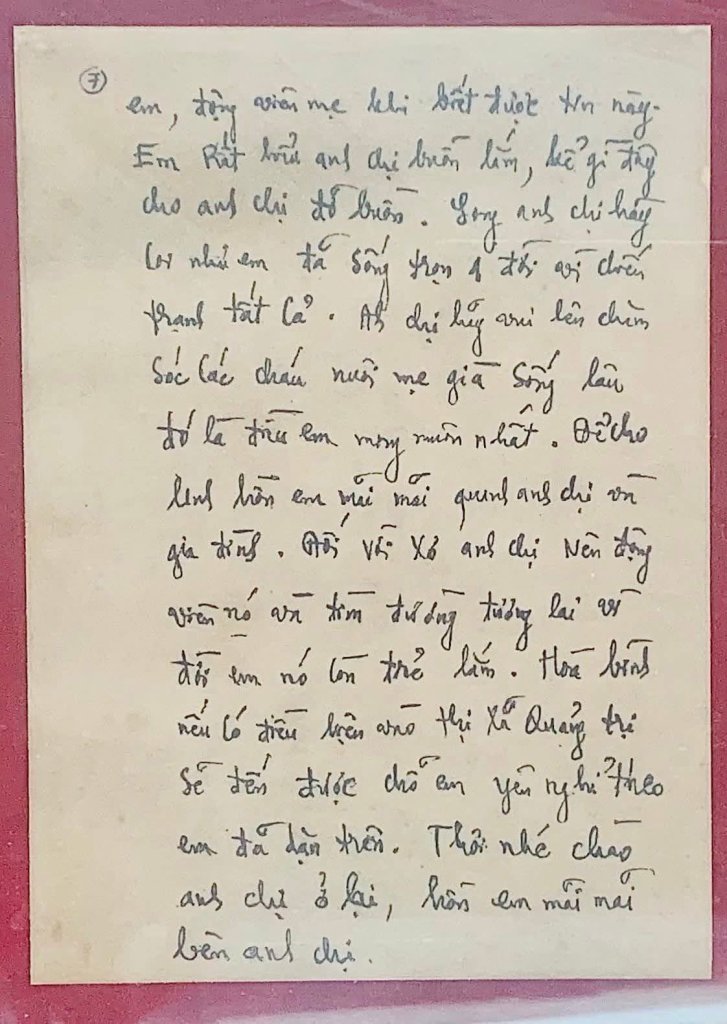 7
em, động viên mẹ khi biết được tin này.
Em Rất hiểu anh chị buồn lắm, kể gì đây
cho anh chị đỡ buồn. Song anh chị hãy
coi như em đã sống trọn 1 đời vì chiến
tranh tất cả. Ah chị hãy vui lên chăm
sóc các cháu nuôi mẹ già sống lâu
đó là điều em mong muốn nhất. Để cho
linh hồn em mãi mãi quanh anh chị và
gia đình. Đối với Xơ anh chị Nên động
viên nó và tìm đường tương lai vì
đời em nó còn trẻ lắm. Hoà bình
nếu có điều kiện vào thị xã Quảng trị
sẽ đến được chỗ em yên nghỉ theo
em đã dặn trên. Thôi nhé chào
anh chị ở lại, hồn em mãi mãi
bên anh chị.